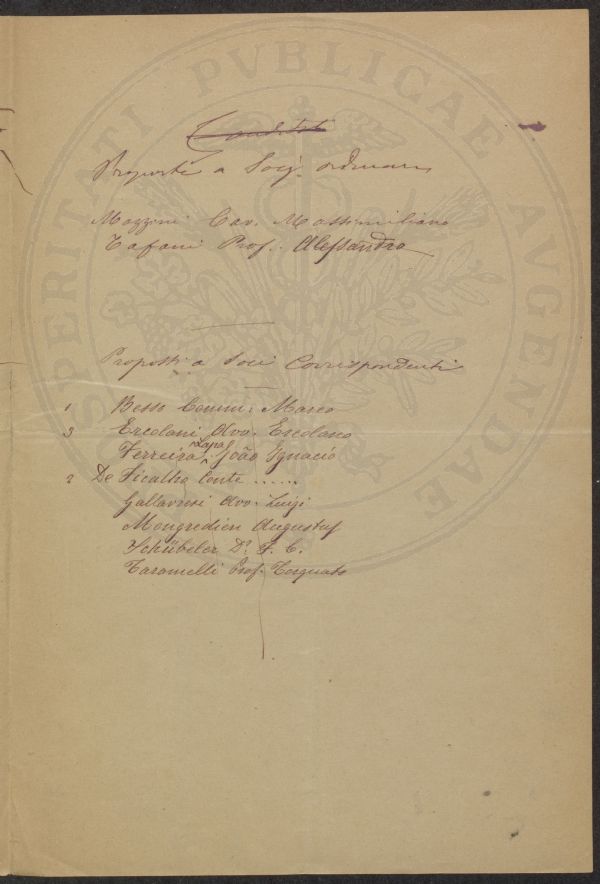 PROSPERITATI PVBLICAE AVGENDAE
Proposti a Socj ordinarj
Mazzini Cav. Massimiliano
Tafani Prof. Alessandro
Proposti a Soci Corrispondenti
1 Besso Comm: Marco
3 Ercolani Avv. Ercolano
Ferreira Lapa João Ignacio
2 De Ficalho Conte ......
Gallavresi Avv. Luigi
Mongredien Augustus
Schübeler Dr. F. C.
Taramelli Prof. Torquato